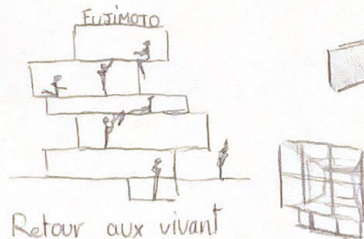 FUJIMOTO
Retour aux vivant